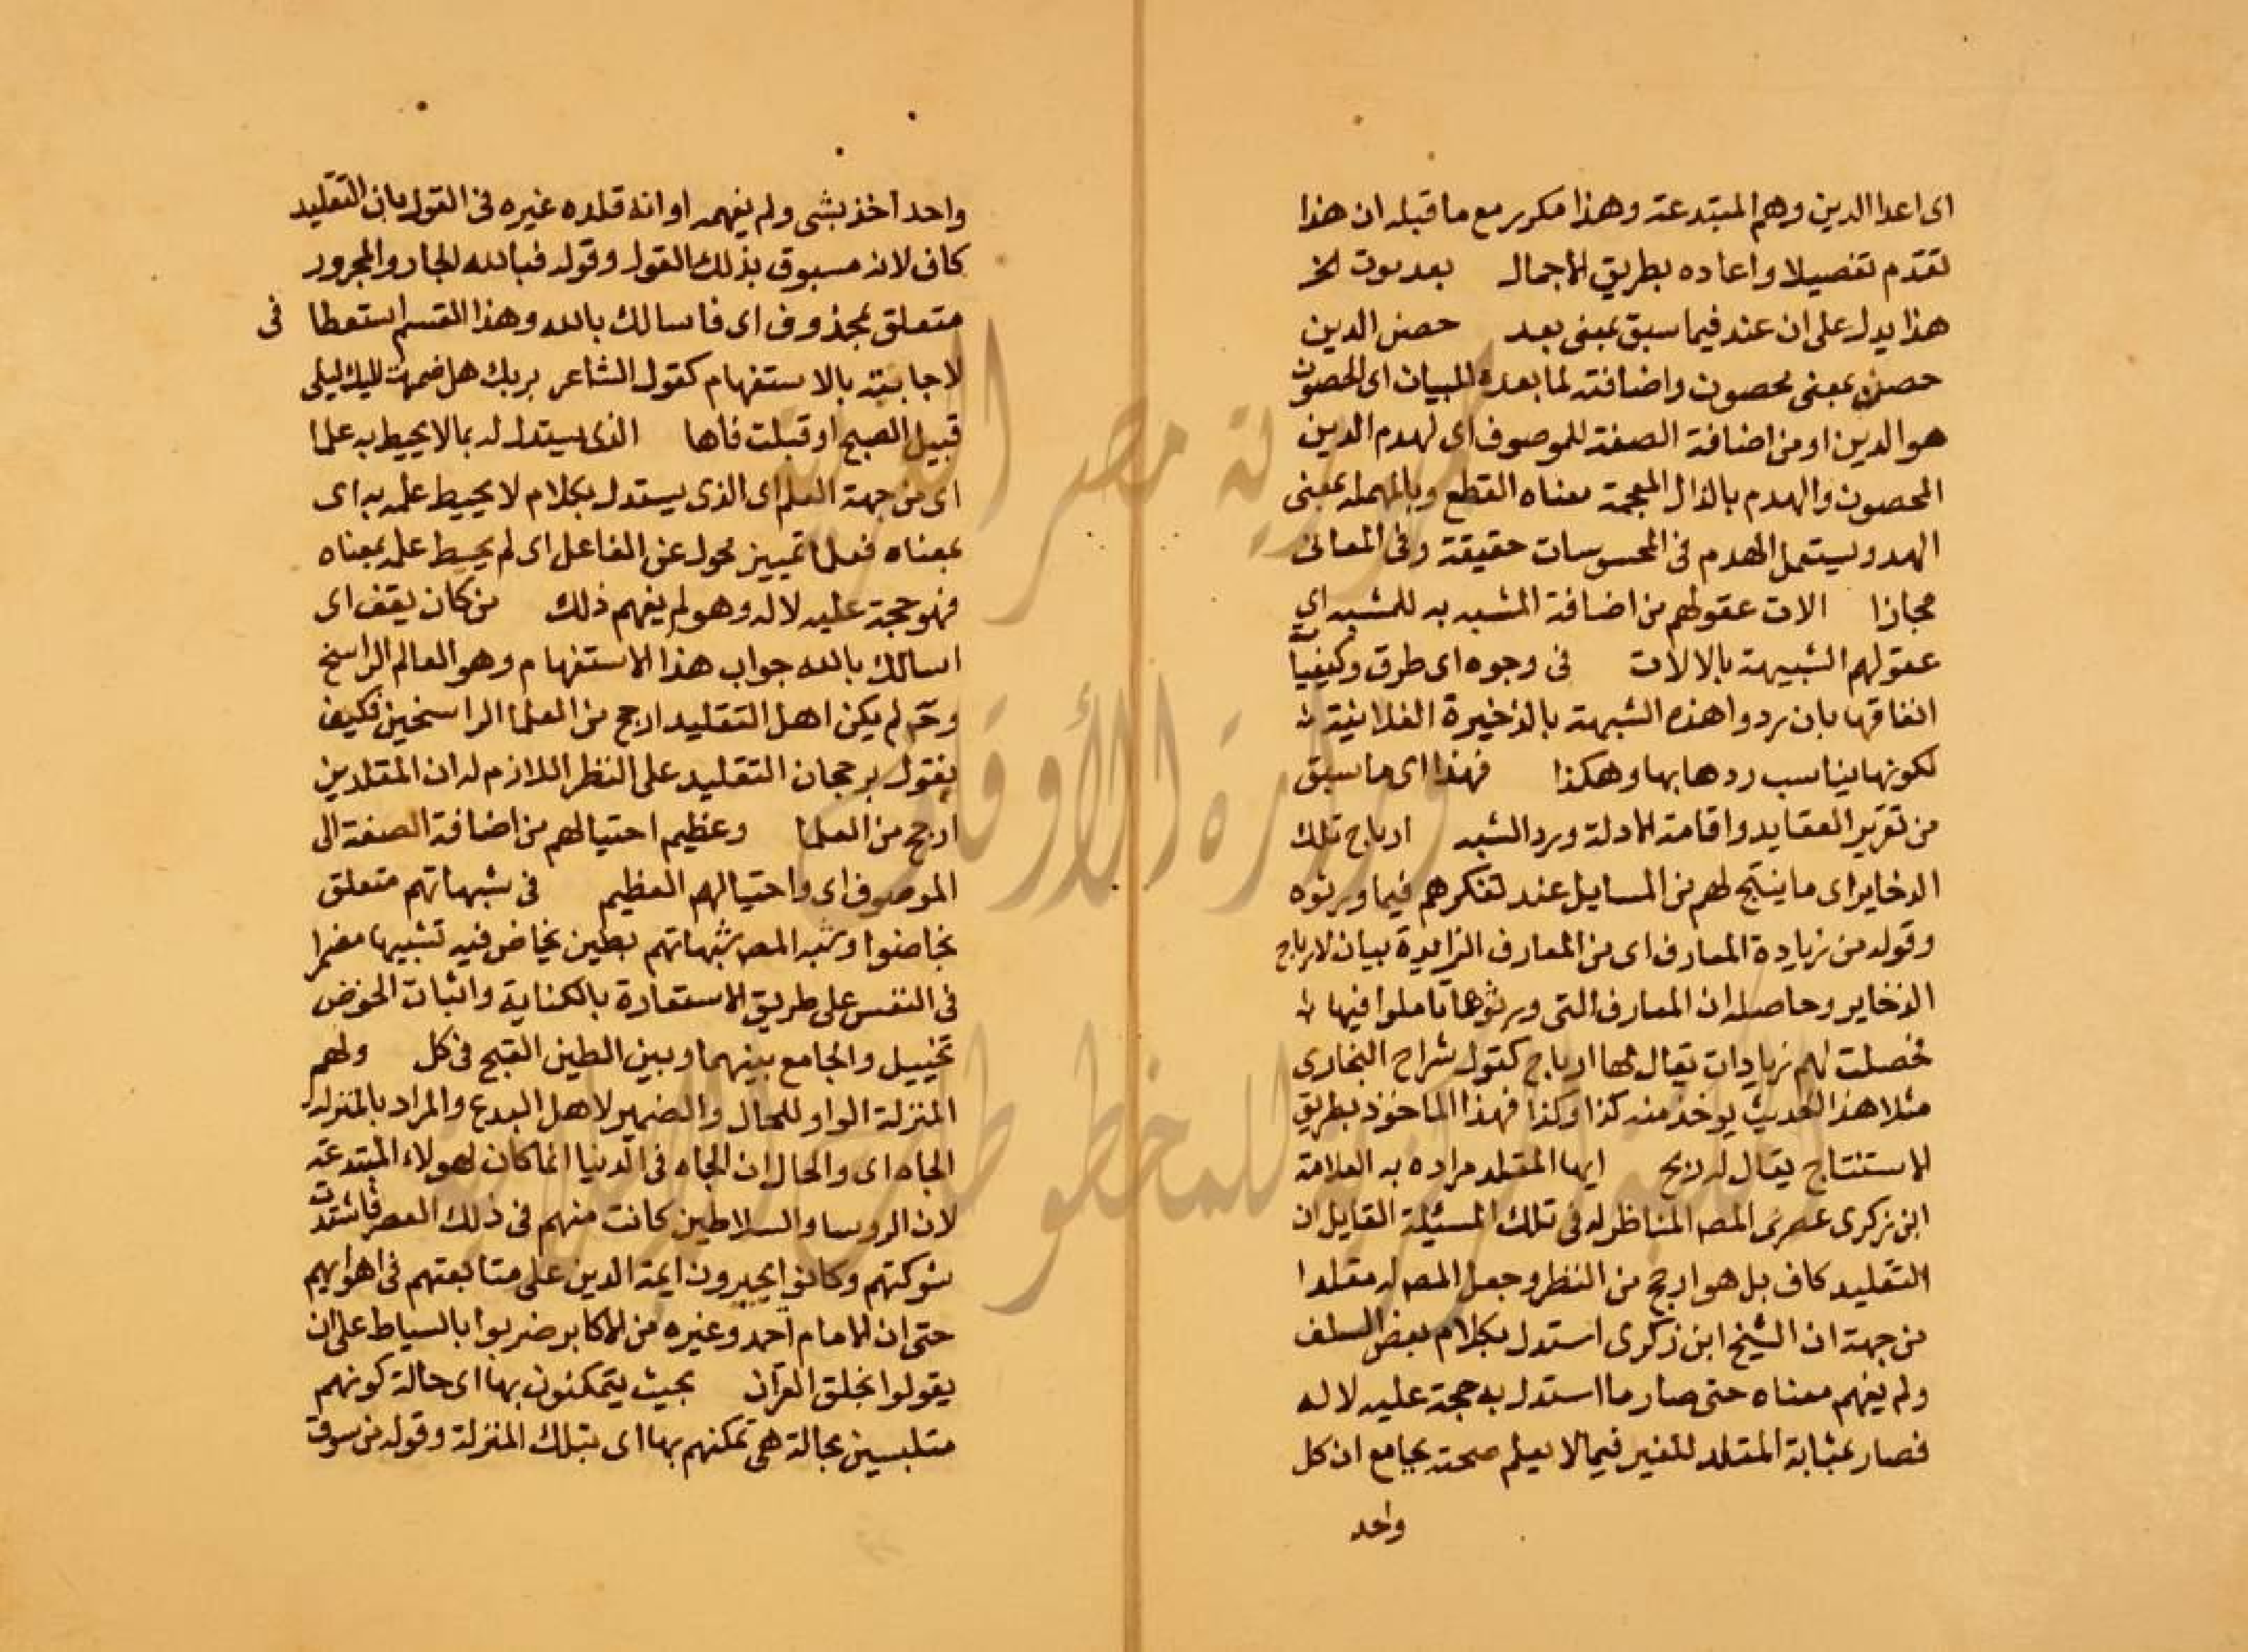 اى اعدا الدين وهم المبتدعة وهذا مكرر مع ما قبله ان هذا
تقدم تفصيلا واعاده بطريق الاجمال بعد موت الخ
هذا يدل على ان عند فيما سبق بمعنى بعد حصن الدين
حصن بمعنى محصون واضافته لما بعده للبيان اى المحصون
هو الدين او من اضافة الصفة للموصوف اى لهدم الدين
المحصون والهدم بالذال المعجمة معناه القطع وبالمهملة بمعنى
الهد ويستعمل الهدم فى المحسوسات حقيقة وفى المعانى
مجازا الات عقولهم من اضافة المشبه به للمشبه اي
عقولهم الشبيهة بالالات فى وجوه اى طرق وكيفيات
انفاقها بان يردوا هذه الشبهة بالذخيرة الفلانية
لكونها يناسب ردها بها وهكذا فهذا اى ما سبق
من تقرير العقايد واقامة الادلة ورد الشبه ارباح تلك
الدخاير اى ما ينتج لهم من المسايل عند تفكرهم فيما ورثوه
وقوله من زيادة المعارف اى من المعارف الزايدة بيان لارباح
الذخاير وحاصله ان المعارف التى ورثوها تاملوا فيها
فحصلت لهم زيادات يقال لها ارباح كقول شراح البخارى
مثلا هذا الحديث يوخد منه كذا وكذا فهذا الماخوذ بطريق
الاستنتاج يقال له ربح ايها المقلد مراده به العلامة
ابن زكرى عصرى المصـ المناظر له فى تلك المسئلة القايل ان
التقليد كاف بل هو ارجح من النظر وجعل المصـ له مقلدا
من جهة ان الشيخ ابن زكرى استدل بكلام بعض السلف
ولم يفهم معناه حتى صار ما استدل به حجة عليه لا له
فصار بمثابة المقلد للغير فيما لا يعلم صحته بجامع ان كل
واحد
واحد اخذ بشى ولم يفهمه او انه قلده غيره فى القول بان التقليد
كاف لانه مسبوق بذلك القول وقوله فبالله الجار والمجرور
متعلق بمحذوف اى فاسالك بالله وهذا القسم استعطا فى
لاجابته بالاستفهام كقول الشاعر بربك هل ضممت اليك ليلى
قبيل الصبح او قبلت فاها الذى يستدل له بما لا يحيط به علما
اى من جهة العلم اى الذى يستدل بكلام لا يحيط علمه به اى
بمعناه فعلما تمييز محول عن الفاعل اى لم يحيط علمه بمعناه
فهو حجة عليه لا له وهو لم يفهم ذلك من كان يقف اى
اسالك بالله جواب هذا الاستفهام وهو العالم الراسخ
وح لم يكن اهل التقليد ارجح من العلما الراسخين فكيف
يقول برجحان التقليد على النظر اللازم له ان المقلدين
ارجح من العلما وعظيم احتيالهم من اضافة الصفة الى
الموصوف اى واحتيالهم العظيم فى شبهاتهم متعلق
بخاضوا وشبه المصـ شبهاتهم بطين يخاض فيه تشبيها مضمرا
فى النفس على طريق الاستعارة بالكناية واثبات الخوض
تخييل والجامع بينهما وبين الطين القبح فى كل ولهم
المنزلة الواو للحال والضمير لاهل البدع والمراد بالمنزلة
الجاه اى والحال ان الجاه فى الدنيا انما كان لهولاء المبتدعة
لان الروسا والسلاطين كانت منهم فى ذلك العصر فاشتدت
شوكتهم وكانوا يجبرون ايمة الدين على متابعتهم فى اهوايهم
حتى ان الامام احمد وغيره من الاكابر ضربوا بالسياط على ان
يقولوا بخلق القران بحيث يتمكنون بها اى حالة كونهم
متلبسين بحالة هى تمكنهم بها اى بتلك المنزلة وقوله من سوق
جمهورية مصر العربية
وزارة الأوقاف
المكتبة المركزية للمخطوطات الإسلامية